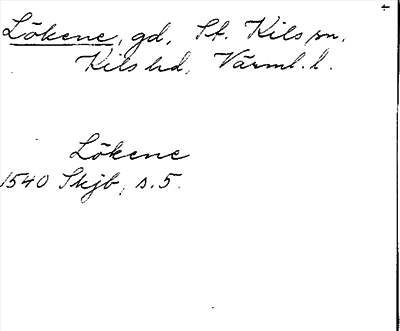 Lökene, gd, St. Kils sn,
Kils hd, Värml. l.
Lökene
1540 Skjb, s. 5.